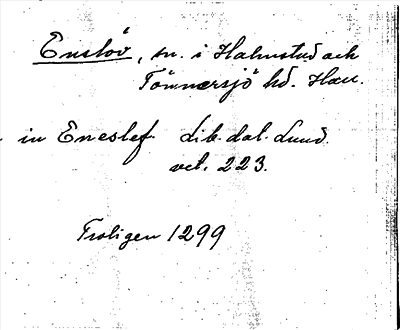 Enslöv, sn. i Halmstad och
Tönnersjö hd. Hall.
in Eneslef Lib. dat. Lund.
vet. 223.
Troligen 1299